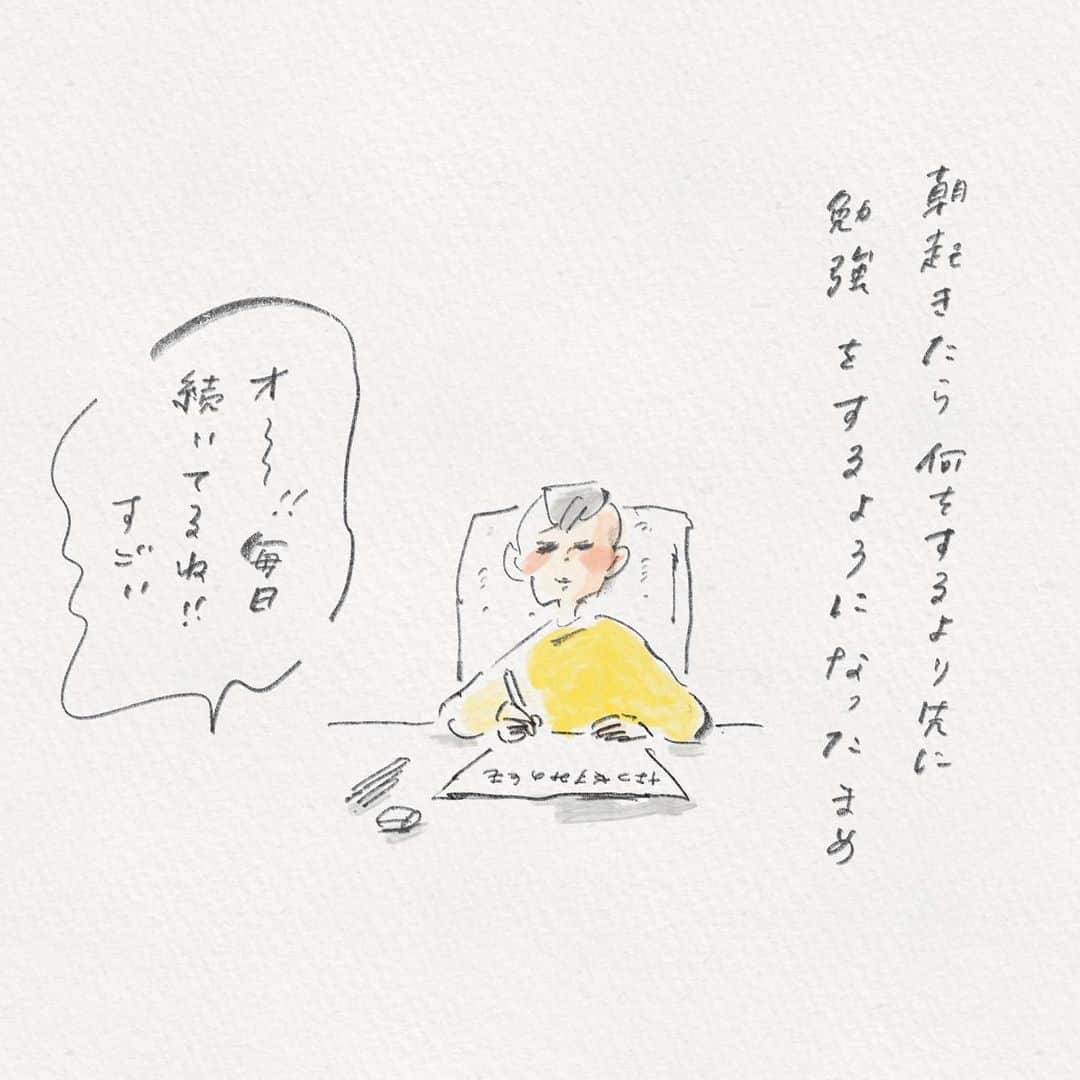 朝起きたら何をするより先に
勉強をするようになったまめ
オ〜〜!!毎日
続いてるね!!
すごい